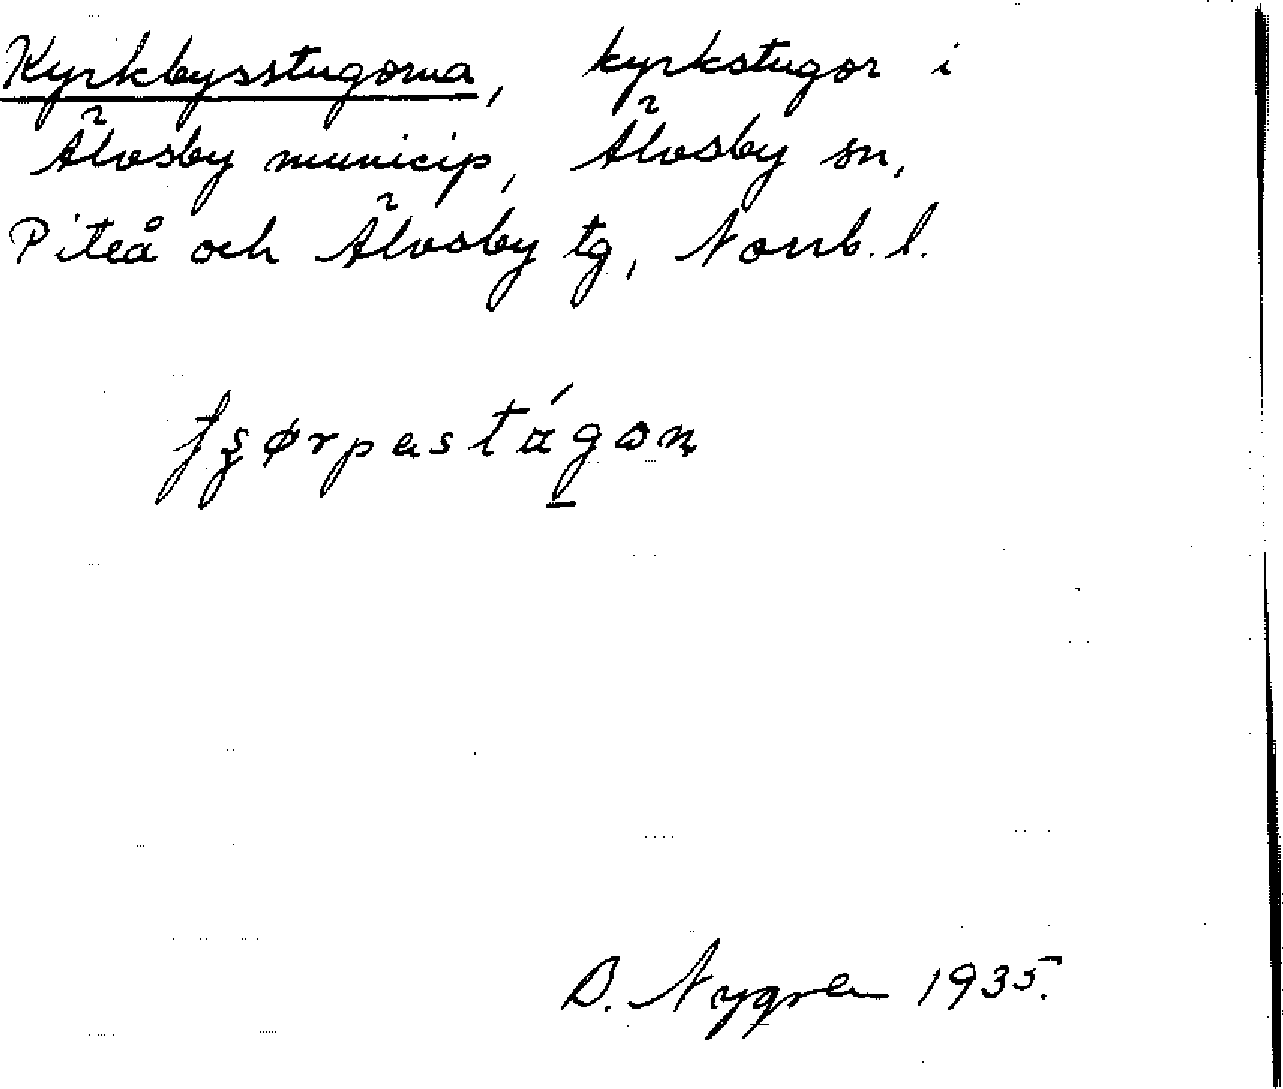 Kyrkbysstugorna, kyrkstugor i
Älvsby municip, Älvsby sn,
Piteå och Älvsby tg, Norrb. l.
B. Nygren 1935.